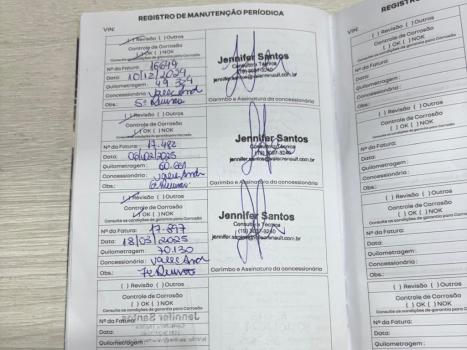 REGISTRO DE MANUTENÇÃO PERIÓDICA
VIN:
( ) Revisão ( ) Outros
Controle de Corrosão
( ) OK ( ) NOK
Consulte as condições de garantia para Corrosão
Nº da Fatura: 16649
Data: 10/12/2024
Quilometragem: 49.334
Concessionária:
Obs.: 5ª Revisão
Jennifer Santos
Consultora Técnica
Carimbo e Assinatura da concessionária
( ) Revisão ( ) Outros
Controle de Corrosão
( ) OK ( ) NOK
Consulte as condições de garantia para Corrosão
Nº da Fatura: 17.482
Data: 06/02/2025
Quilometragem: 60.661
Concessionária:
Obs.: 6ª Revisão
Jennifer Santos
Consultora Técnica
Carimbo e Assinatura da concessionária
( ) Revisão ( ) Outros
Controle de Corrosão
( ) OK ( ) NOK
Consulte as condições de garantia para Corrosão
Nº da Fatura: 17.897
Data: 18/03/2025
Quilometragem: 70.130
Concessionária:
Obs.: 7ª Revisão
Jennifer Santos
Consultora Técnica
Carimbo e Assinatura da concessionária
( ) Revisão ( ) Outros
Controle de Corrosão
( ) OK ( ) NOK
Consulte as condições de garantia para Corrosão
Nº da Fatura:
Data:
Quilometragem:
( ) Revisão ( ) Outros
Controle de Corrosão
( ) OK ( ) NOK
Nº da Fatura:
Data:
Quilometragem:
Concessionária:
Obs.:
( ) Revisão ( ) Outros
Controle de Corrosão
( ) OK ( ) NOK
Nº da Fatura:
Data:
Quilometragem:
Concessionária:
Obs.:
( ) Revisão ( ) Outros
Controle de Corrosão
( ) OK ( ) NOK
Nº da Fatura:
Data:
Quilometragem:
Concessionária:
Obs.:
( ) Revisão ( ) Outros
Controle de Corrosão
( ) OK ( ) NOK
Nº da Fatura:
Data:
Quilometragem: